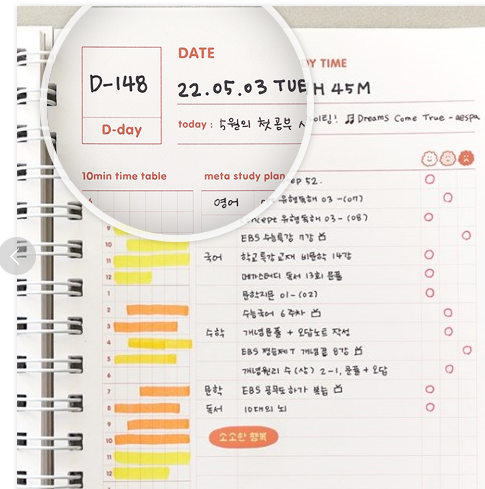 DATE
DY TIME
D-148
22.05.03 TUE
H 45M
D-day
today : 5월의 첫 공부
이팅! ♫ Dreams Come True - aespa
10min time table
meta study plan
ep 52.
영어
유형독해 03 - (07)
concept 유형독해 03 - (08)
EBS 수능특강 7강
국어 학교특강교재 비문학 14강
메가스터디 독서 13회 문풀
문학지문 01 - (02)
수능국어 6주차
수학 개념문풀 + 오답노트 작성
EBS 정승제T 개념콜 8강
개념원리 수(상) 2-1, 문풀 + 오답
문학 EBS 공무도하가 복습
독서 10대의 뇌
소소한 행복
9
10
11
12
1
2
3
4
5
6
7
8
9
10
11
12